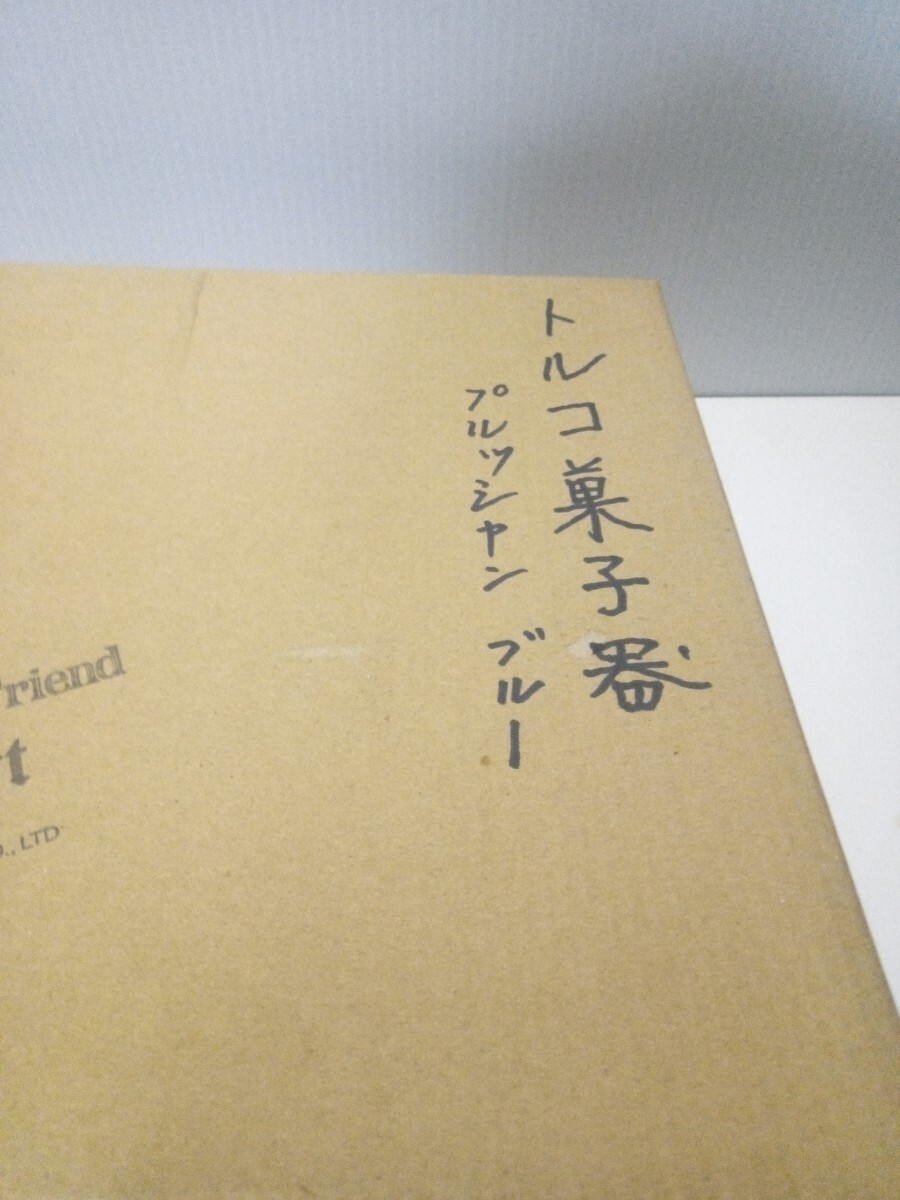 トルコ菓子器
プルツシャン ブルー
Friend
LTD